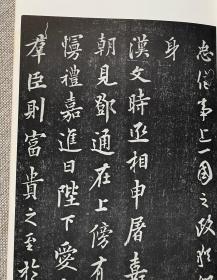 忠信事上一國之政
身
漢文時丞相申屠嘉
朝見鄧通在上傍有
慢禮嘉進曰陛下愛
群臣則富貴之至於